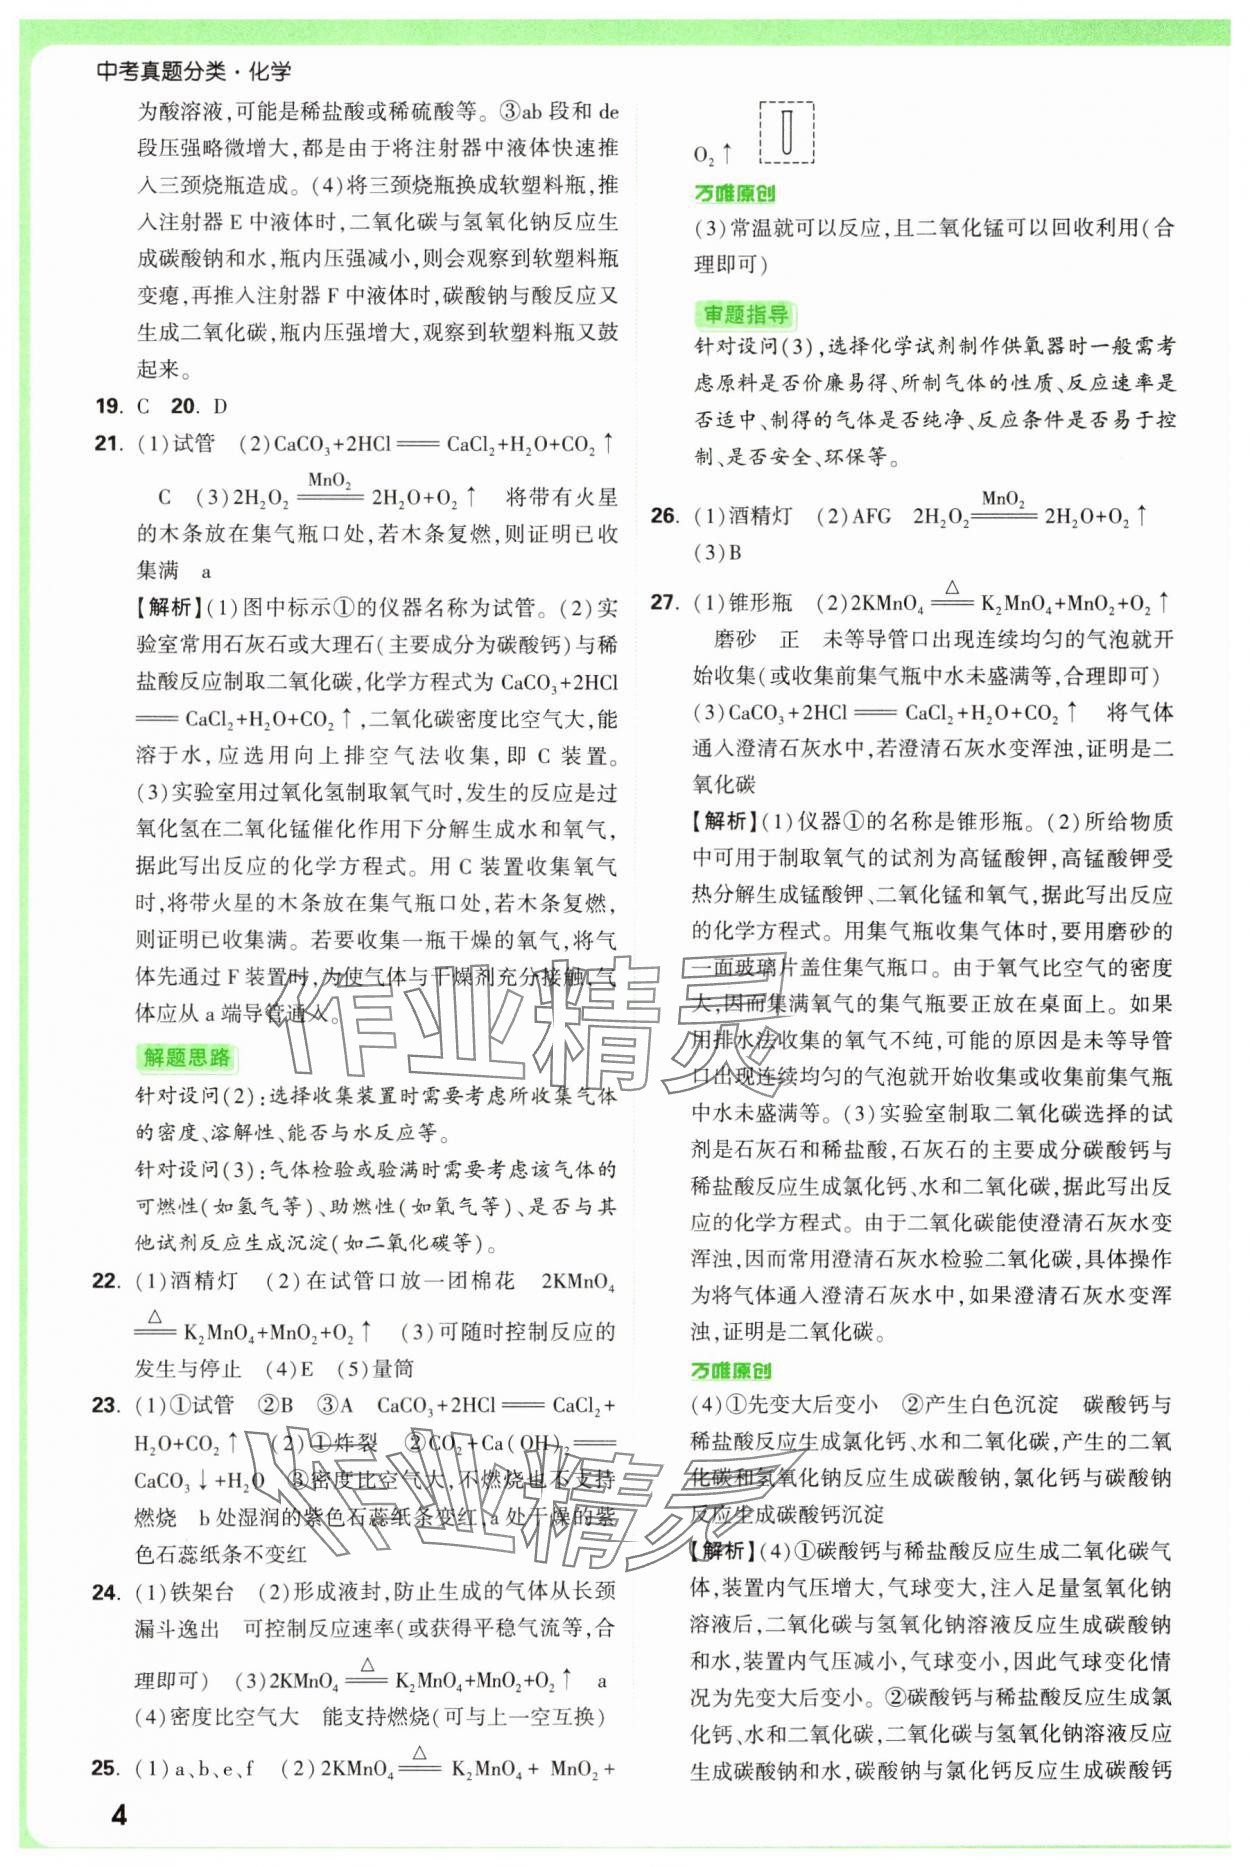 中考真题分类·化学
为酸溶液,可能是稀盐酸或稀硫酸等。③ab 段和 de
段压强略微增大,都是由于将注射器中液体快速推
入三颈烧瓶造成。(4)将三颈烧瓶换成软塑料瓶,推
入注射器 E 中液体时,二氧化碳与氢氧化钠反应生
成碳酸钠和水,瓶内压强减小,则会观察到软塑料瓶
变瘪,再推入注射器 F 中液体时,碳酸钠与酸反应又
生成二氧化碳,瓶内压强增大,观察到软塑料瓶又鼓
起来。
19. C 20. D
21. (1)试管 (2)CaCO₃+2HCl══CaCl₂+H₂O+CO₂↑
C (3)2H₂O₂ ══(MnO₂) 2H₂O+O₂↑ 将带有火星
的木条放在集气瓶口处,若木条复燃,则证明已收
集满 a
【解析】(1)图中标示①的仪器名称为试管。(2)实
验室常用石灰石或大理石(主要成分为碳酸钙)与稀
盐酸反应制取二氧化碳,化学方程式为 CaCO₃+2HCl
══CaCl₂+H₂O+CO₂↑,二氧化碳密度比空气大,能
溶于水,应选用向上排空气法收集,即 C 装置。
(3)实验室用过氧化氢制取氧气时,发生的反应是过
氧化氢在二氧化锰催化作用下分解生成水和氧气,
据此写出反应的化学方程式。用 C 装置收集氧气
时,将带火星的木条放在集气瓶口处,若木条复燃,
则证明已收集满。若要收集一瓶干燥的氧气,将气
体先通过 F 装置时,为使气体与干燥剂充分接触,气
体应从 a 端导管通入。
解题思路
针对设问(2):选择收集装置时需要考虑所收集气体
的密度、溶解性、能否与水反应等。
针对设问(3):气体检验或验满时需要考虑该气体的
可燃性(如氢气等)、助燃性(如氧气等)、是否与其
他试剂反应生成沉淀(如二氧化碳等)。
22. (1)酒精灯 (2)在试管口放一团棉花 2KMnO₄
══(△) K₂MnO₄+MnO₂+O₂↑ (3)可随时控制反应的
发生与停止 (4)E (5)量筒
23. (1)①试管 ②B ③A CaCO₃+2HCl══CaCl₂+
H₂O+CO₂↑ (2)①炸裂 ②CO₂+Ca(OH)₂══
CaCO₃↓+H₂O ③密度比空气大,不燃烧也不支持
燃烧 b 处湿润的紫色石蕊纸条变红,a 处干燥的紫
色石蕊纸条不变红
24. (1)铁架台 (2)形成液封,防止生成的气体从长颈
漏斗逸出 可控制反应速率(或获得平稳气流等,合
理即可) (3)2KMnO₄ ══(△) K₂MnO₄+MnO₂+O₂↑ a
(4)密度比空气大 能支持燃烧(可与上一空互换)
25. (1)a、b、e、f (2)2KMnO₄ ══(△) K₂MnO₄+ MnO₂+
4
O₂↑
万唯原创
(3)常温就可以反应,且二氧化锰可以回收利用(合
理即可)
审题指导
针对设问(3),选择化学试剂制作供氧器时一般需考
虑原料是否价廉易得、所制气体的性质、反应速率是
否适中、制得的气体是否纯净、反应条件是否易于控
制、是否安全、环保等。
26. (1)酒精灯 (2)AFG 2H₂O₂ ══(MnO₂) 2H₂O+O₂↑
(3)B
27. (1)锥形瓶 (2)2KMnO₄ ══(△) K₂MnO₄+MnO₂+O₂↑
磨砂 正 未等导管口出现连续均匀的气泡就开
始收集(或收集前集气瓶中水未盛满等,合理即可)
(3)CaCO₃+2HCl══CaCl₂+H₂O+CO₂↑ 将气体
通入澄清石灰水中,若澄清石灰水变浑浊,证明是二
氧化碳
【解析】(1)仪器①的名称是锥形瓶。(2)所给物质
中可用于制取氧气的试剂为高锰酸钾,高锰酸钾受
热分解生成锰酸钾、二氧化锰和氧气,据此写出反应
的化学方程式。用集气瓶收集气体时,要用磨砂的
一面玻璃片盖住集气瓶口。由于氧气比空气的密度
大,因而集满氧气的集气瓶要正放在桌面上。如果
用排水法收集的氧气不纯,可能的原因是未等导管
口出现连续均匀的气泡就开始收集或收集前集气瓶
中水未盛满等。(3)实验室制取二氧化碳选择的试
剂是石灰石和稀盐酸,石灰石的主要成分碳酸钙与
稀盐酸反应生成氯化钙、水和二氧化碳,据此写出反
应的化学方程式。由于二氧化碳能使澄清石灰水变
浑浊,因而常用澄清石灰水检验二氧化碳,具体操作
为将气体通入澄清石灰水中,如果澄清石灰水变浑
浊,证明是二氧化碳。
万唯原创
(4)①先变大后变小 ②产生白色沉淀 碳酸钙与
稀盐酸反应生成氯化钙、水和二氧化碳,产生的二氧
化碳和氢氧化钠反应生成碳酸钠,氯化钙与碳酸钠
反应生成碳酸钙沉淀
【解析】(4)①碳酸钙与稀盐酸反应生成二氧化碳气
体,装置内气压增大,气球变大,注入足量氢氧化钠
溶液后,二氧化碳与氢氧化钠溶液反应生成碳酸钠
和水,装置内气压减小,气球变小,因此气球变化情
况为先变大后变小。②碳酸钙与稀盐酸反应生成氯
化钙、水和二氧化碳,二氧化碳与氢氧化钠溶液反应
生成碳酸钠和水,碳酸钠与氯化钙反应生成碳酸钙
作业精灵
作业精灵